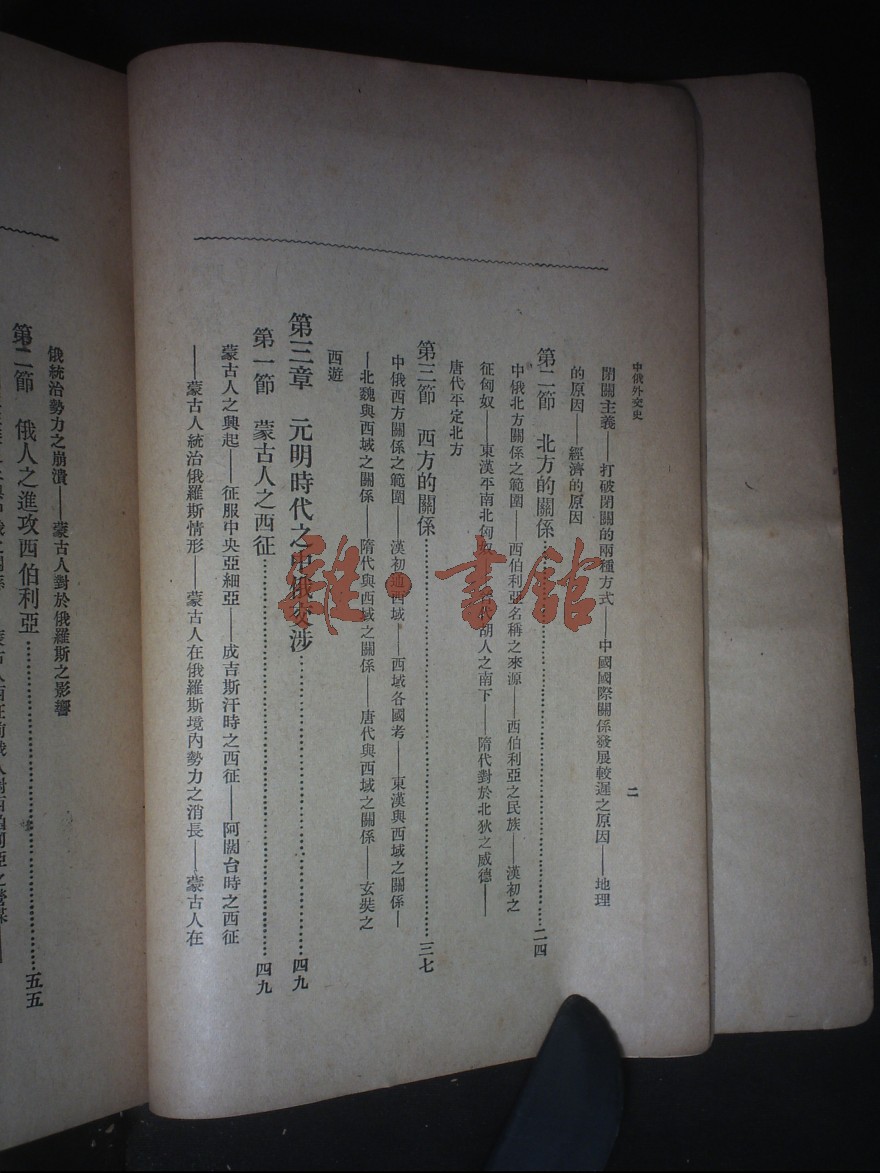 中俄外交史
二
閉關主義——打破閉關的兩種方式——中國國際關係發展較遲之原因——地理
的原因——經濟的原因
第二節 北方的關係…………二四
中俄北方關係之範圍——西伯利亞名稱之來源——西伯利亞之民族——漢初之
征匈奴——東漢平南北匈奴 代胡人之南下——隋代對於北狄之威德——
唐代平定北方
第三節 西方的關係…………三七
中俄西方關係之範圍——漢初通西域——西域各國考——東漢與西域之關係—
—北魏與西域之關係——隋代與西域之關係——唐代與西域之關係——玄奘之
西遊
第三章 元明時代之中俄交涉…………四九
第一節 蒙古人之西征…………四九
蒙古人之興起——征服中央亞細亞——成吉斯汗時之西征——阿闊台時之西征
——蒙古人統治俄羅斯情形——蒙古人在俄羅斯境內勢力之消長——蒙古人在
俄統治勢力之崩潰——蒙古人對於俄羅斯之影響
第二節 俄人之進攻西伯利亞…………五五
雜·書館